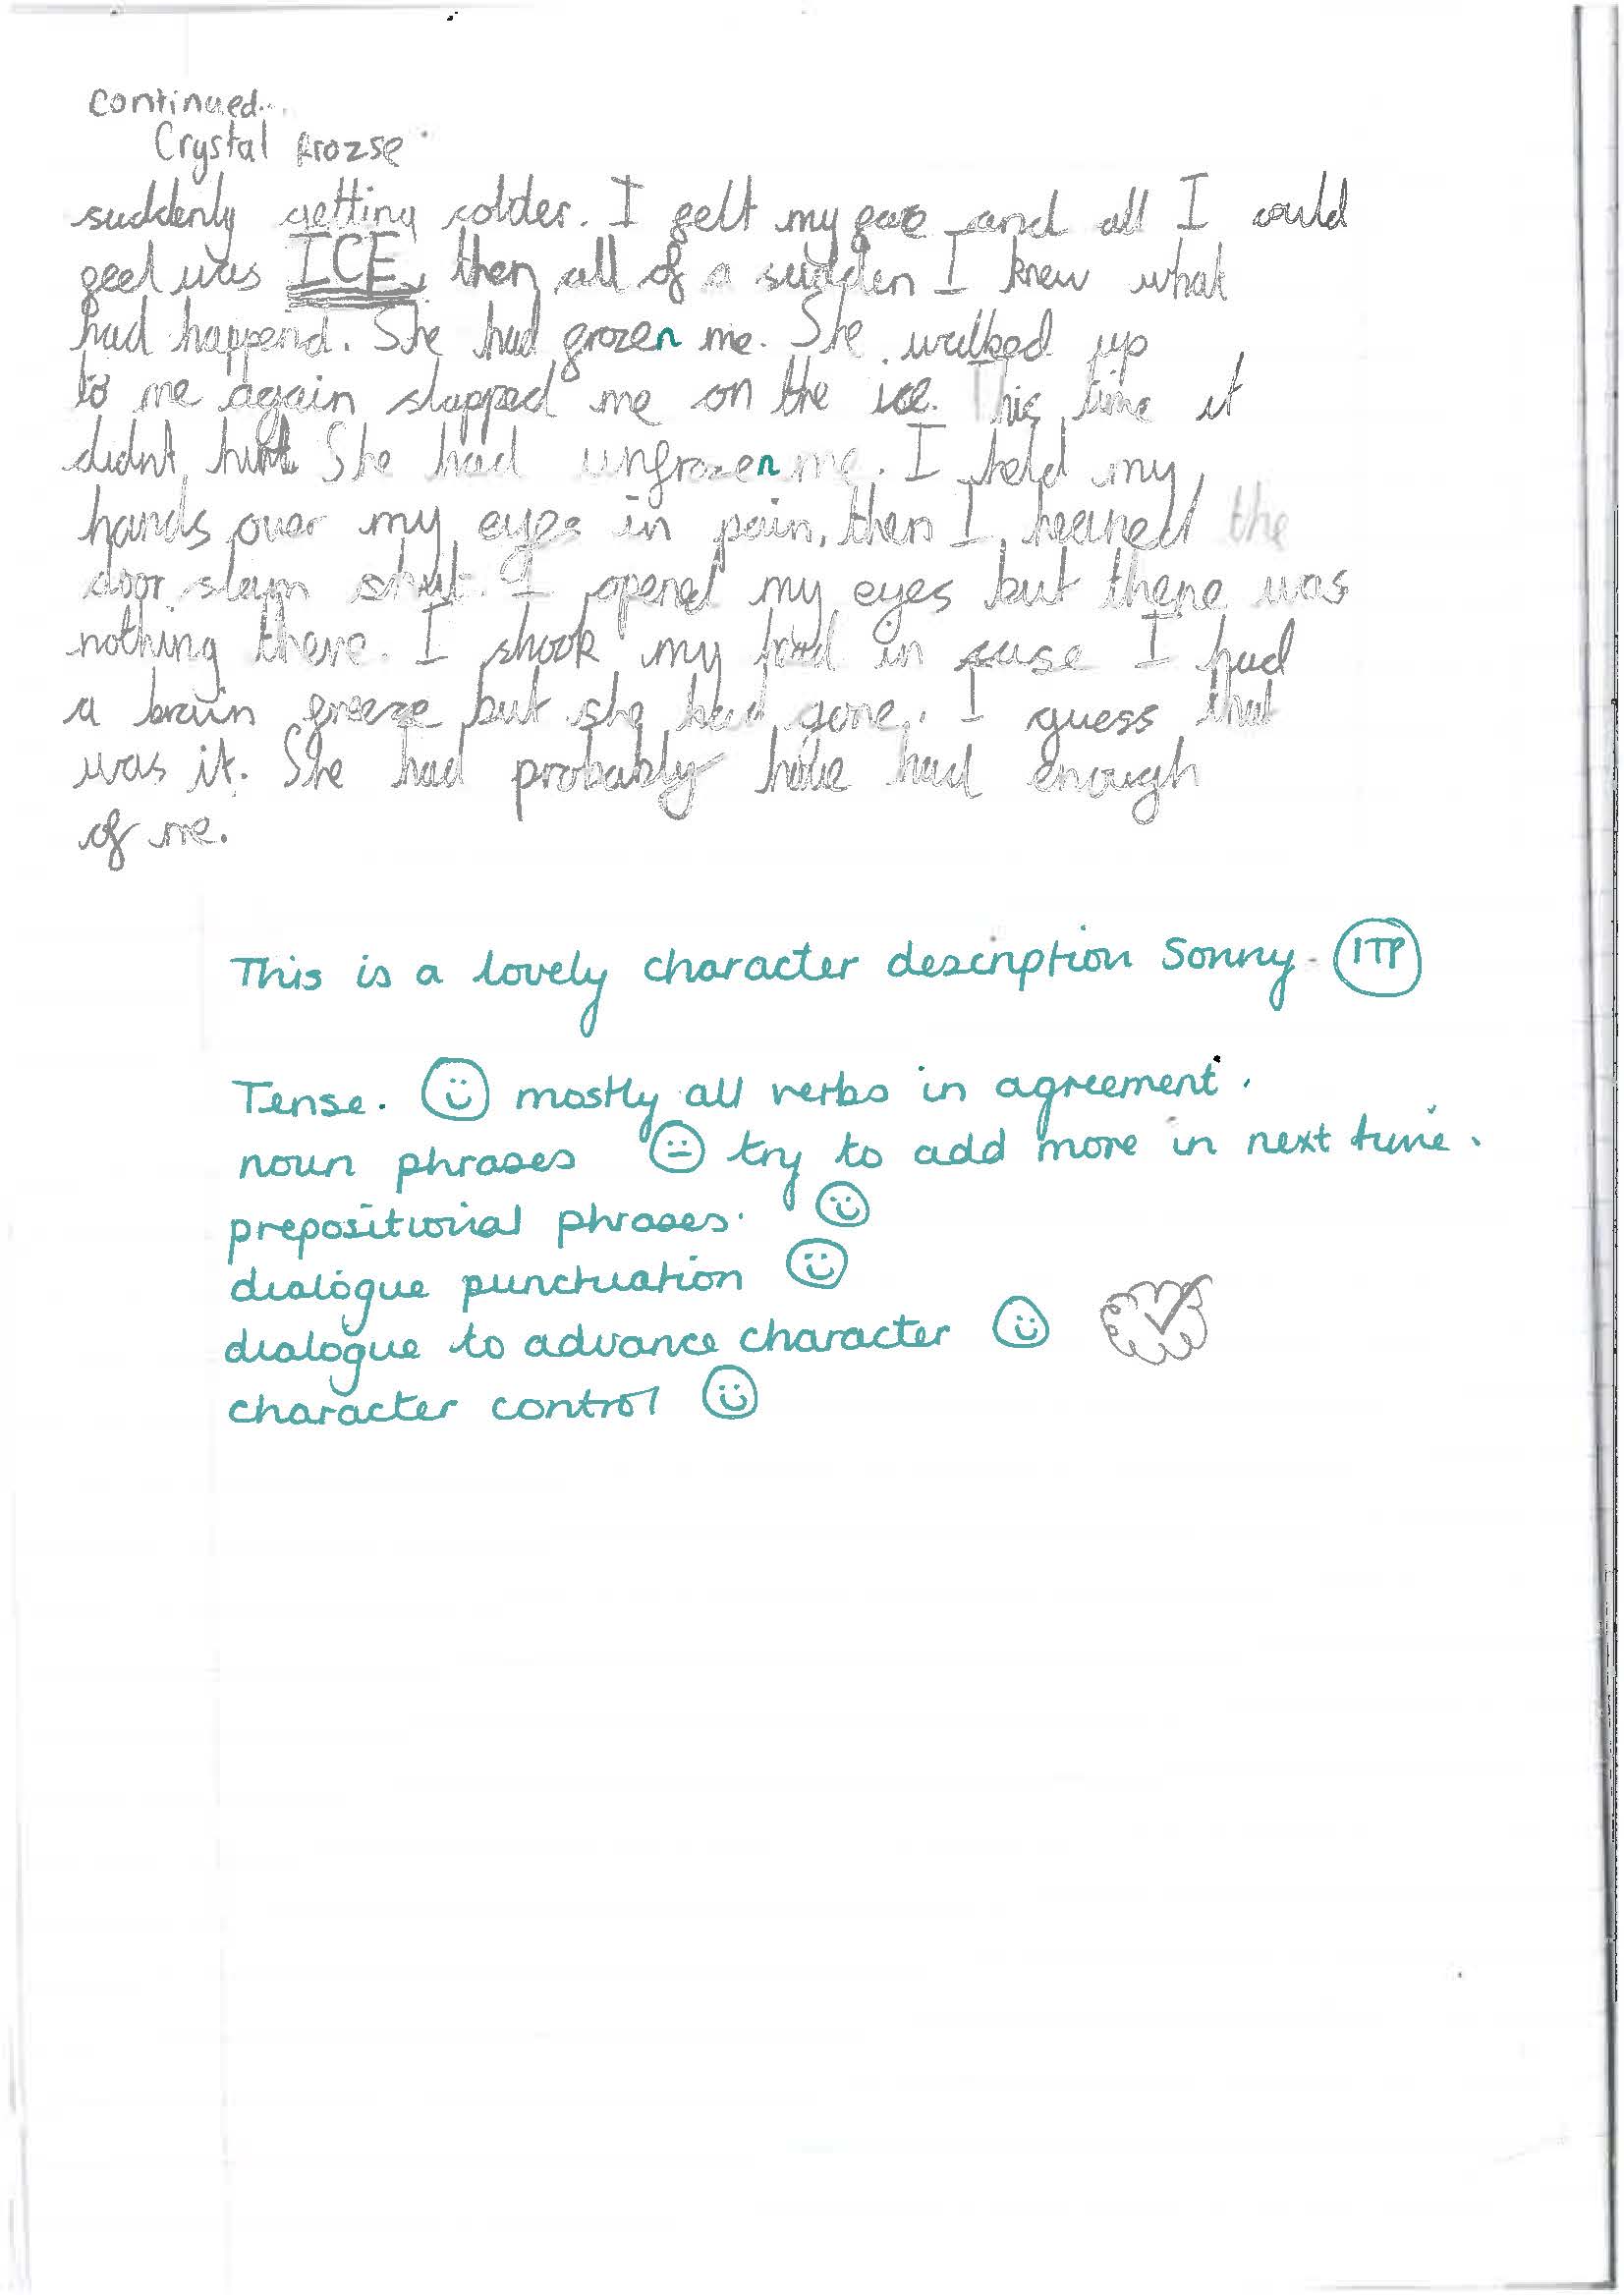 continued...
Crystal Frozse
suddenly getting colder. I felt my face and all I could
feel was ICE, then all of a sudden I knew what
had happend. She had frozen me. She walked up
to me again slapped me on the ice. This time it
didnt hurt. She had unfrozen me. I held my
hands over my eyes in pain, then I heared the
door slam shut. I opened my eyes but there was
nothing there. I shook my head in case I had
a brain freeze but she had gone. I guess that
was it. She had probably have had enough
of me.
This is a lovely character description Sonny. ITP
Tense. mostly all verbs in agreement.
noun phrases try to add more in next time.
prepositional phrases.
dialogue punctuation
dialogue to advance character
character control